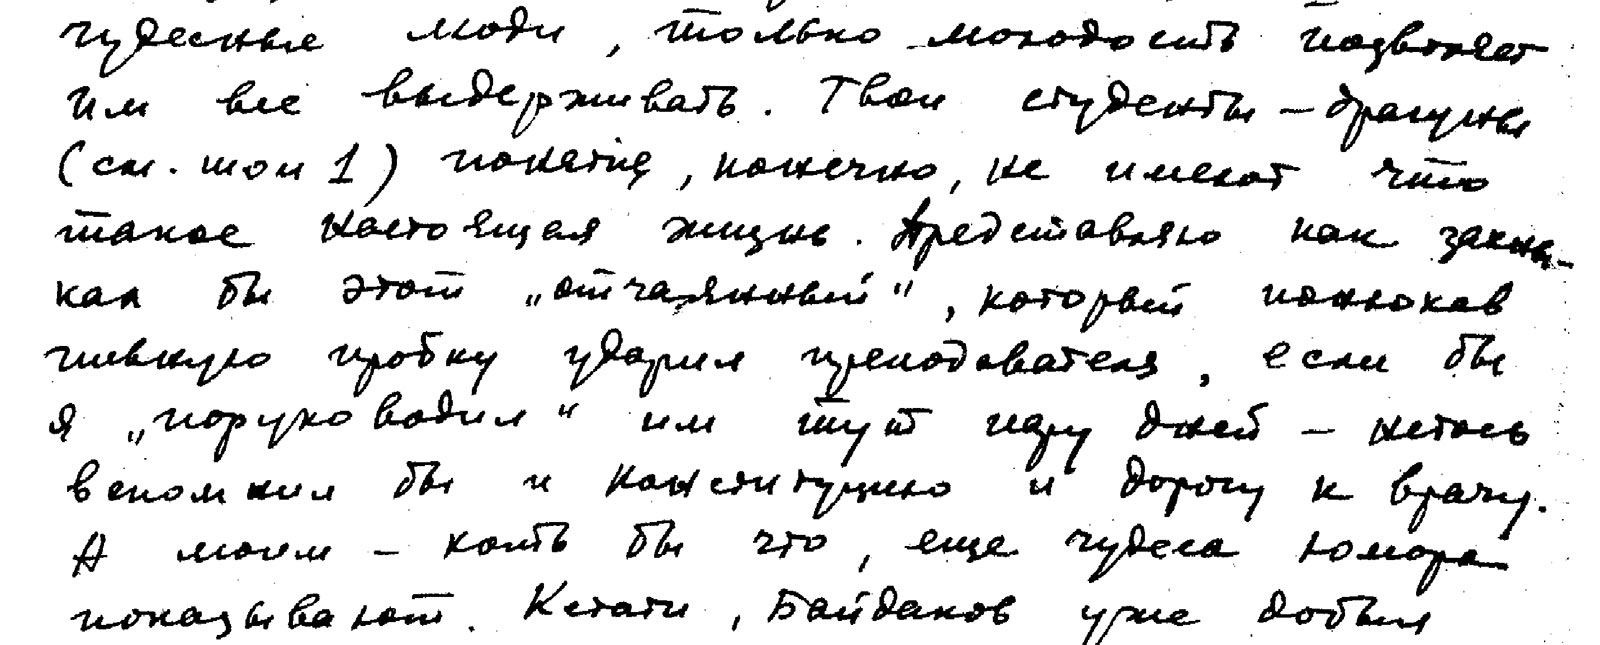 чудесные люди, только молодость позволяет
им все выдерживать. Твои студенты – драгуны
(см. том 1) понятия, конечно, не имеют что
такое настоящая жизнь. Представляю как захны-
кал бы этот „отчаянный“, который понюхав
пивную пробку ударил преподавателя, если бы
я „поруководил“ им тут пару дней –
вспомнил бы и конституцию и дорогу к врачу.
А моим – хоть бы что, еще чудеса юмора
показывают. Кстати, Байдаков уже добыл